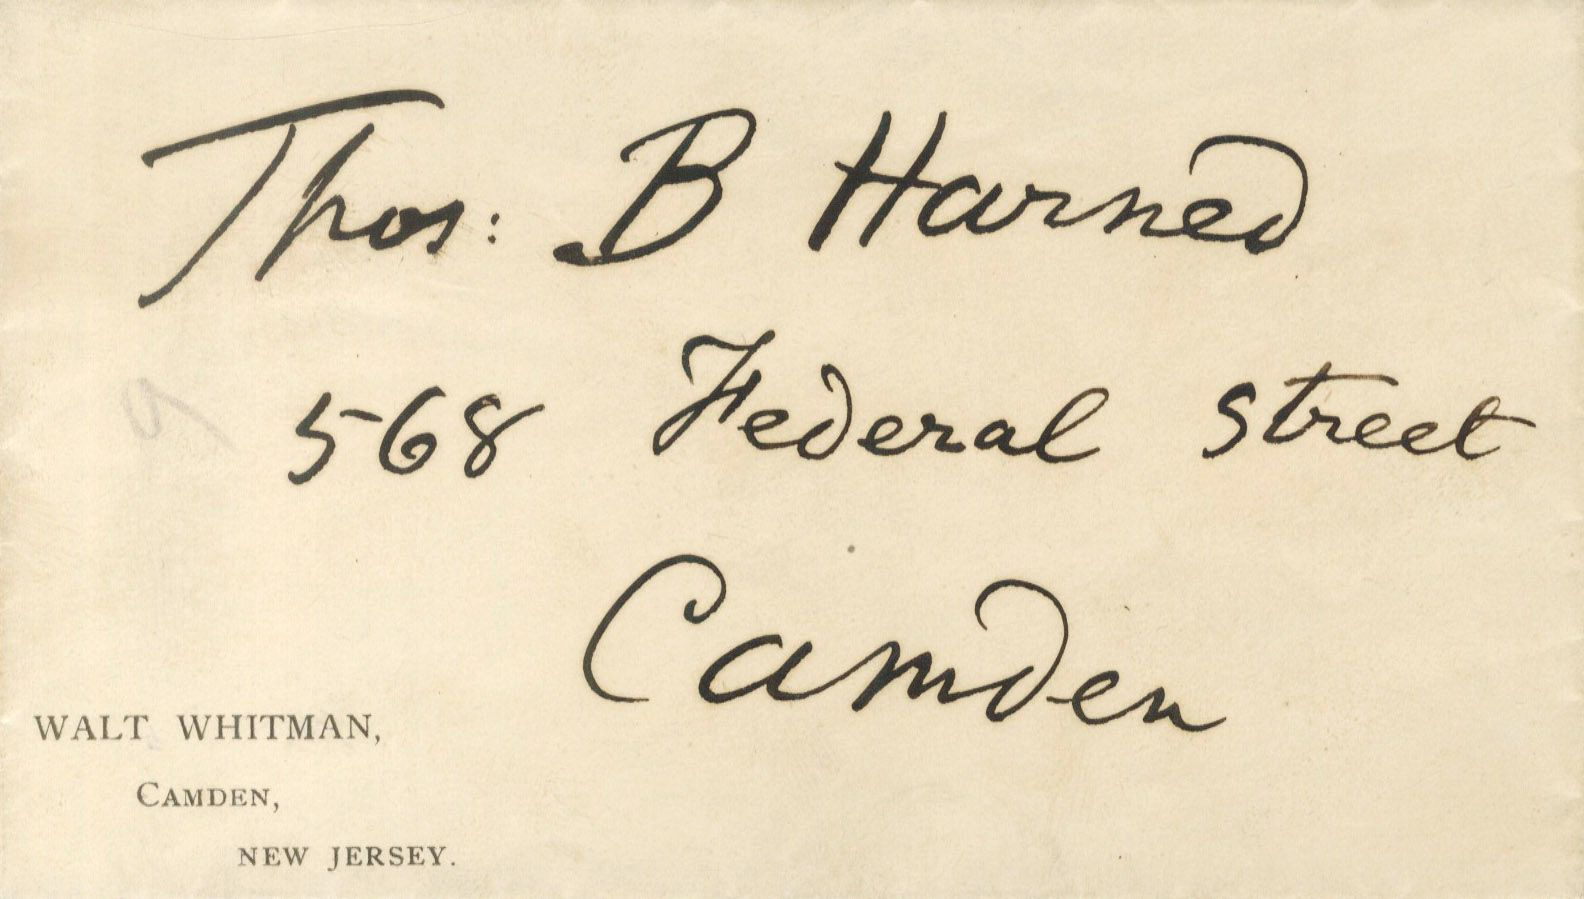 Thos: B Harned
568 Federal Street
Camden
WALT WHITMAN,
CAMDEN,
NEW JERSEY.